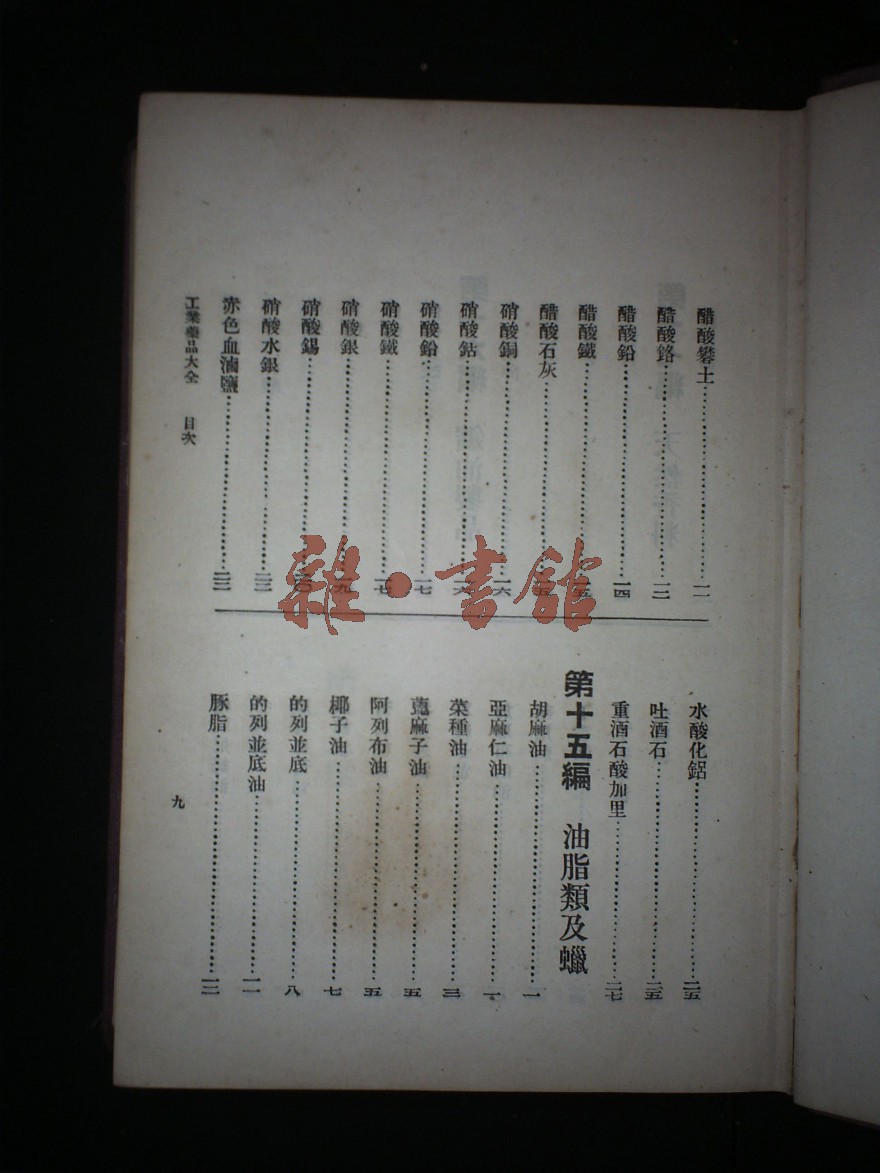 醋酸礬土……一一
醋酸鉻……一二
醋酸鉛……一四
醋酸鐵……一五
醋酸石灰……一五
硝酸銅……一六
硝酸鈷……一六
硝酸鉛……一七
硝酸鐵……一七
硝酸銀……一九
硝酸錫……二〇
硝酸水銀……二二
赤色血滷鹽……二二
水酸化鋁……二五
吐酒石……二五
重酒石酸加里……二七
第十五編 油脂類及蠟
胡麻油……一
亞麻仁油……一
菜種油……三
萞麻子油……五
阿列布油……五
椰子油……七
的列並底……八
的列並底油……一一
豚脂……一二
工業藥品大全 目次
九
雜·書館